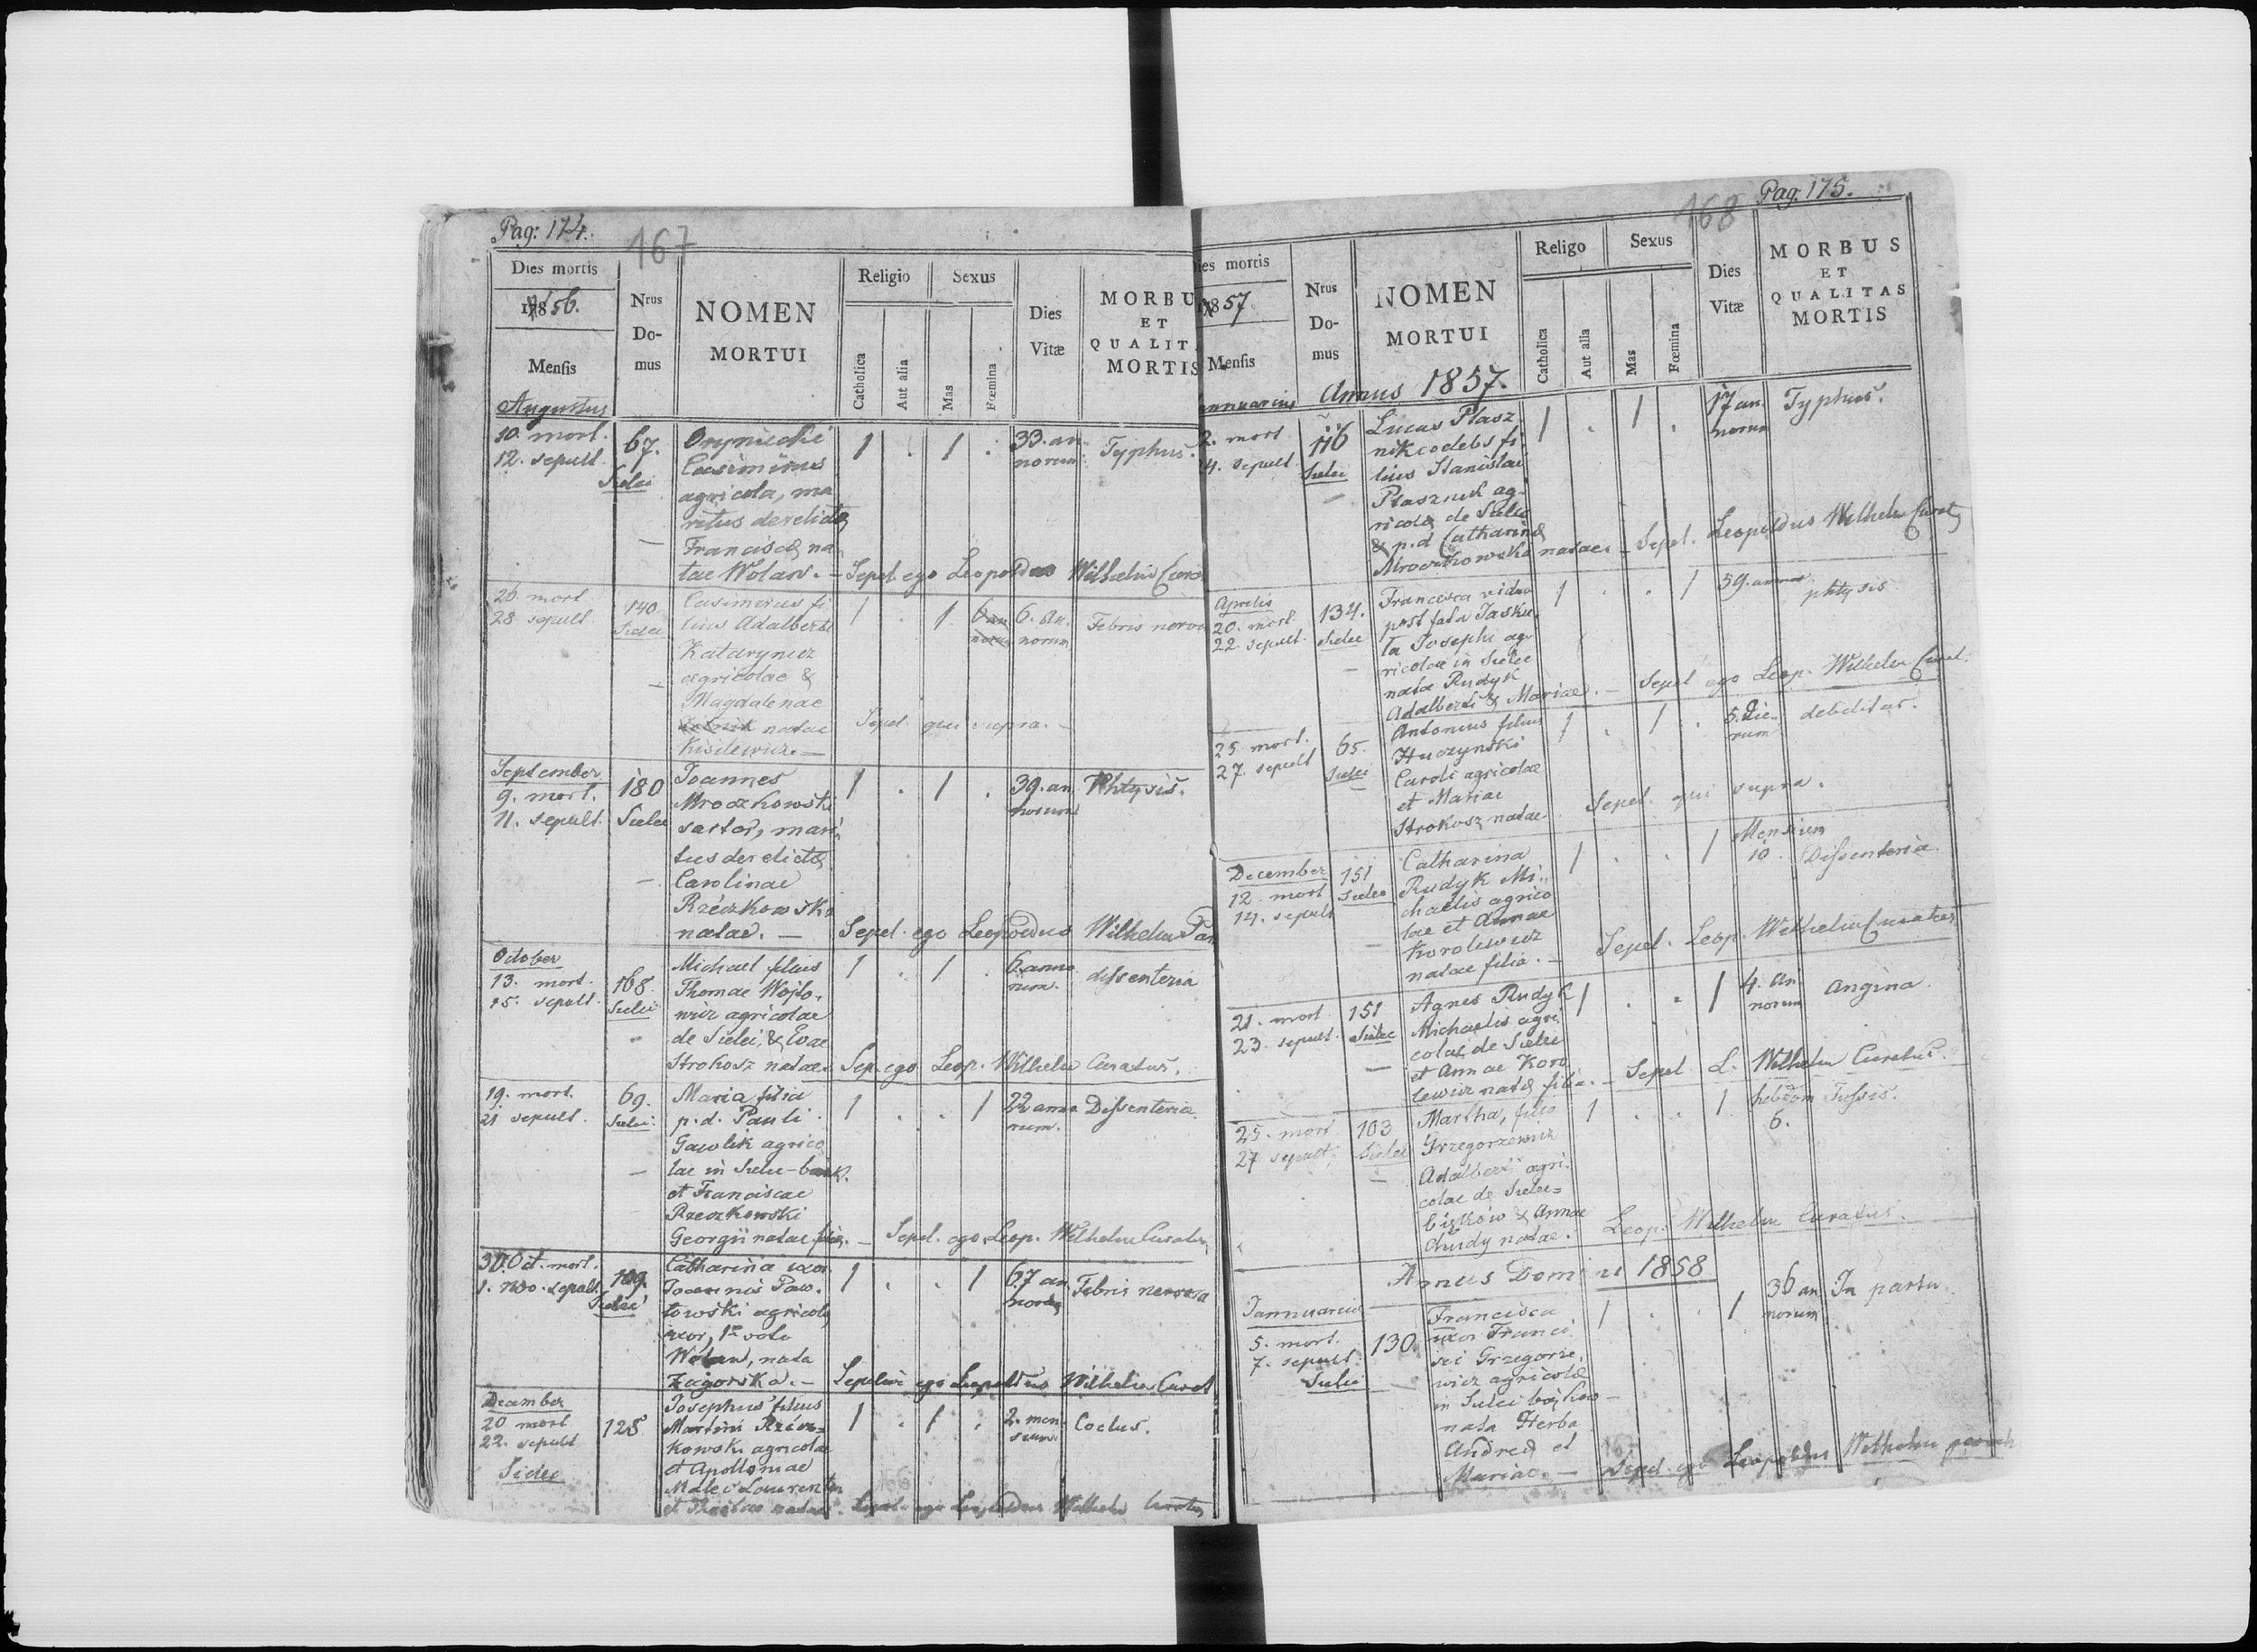 Pag: 174.
167
Dies mortis
1856.
Mensis
Nrus
Do-
mus
NOMEN
MORTUI
Religio
Catholica
Aut alia
Sexus
Mas
Fœmina
Dies
Vitæ
MORBU
ET
QUALIT
MORTIS
Augustus
10. mort.
12. sepult.
67.
Sielec
Casimirus
agricola, ma
ritus derelictæ
Franciscæ na
tae Wolan. –
1 . 1 .
33. an
norum
Typhus.
Sepel. ego Leopoldus Wilhelm
26 mort.
28 sepult.
140.
Sielec
Casimirus fi
lius Adalberti
Katarynicz
agricolae &
Magdalenae
natae
Kisilewicz. –
1 . 1
6. an.
norum
Febris nervo
Sepel. qui supra. –
September
9. mort.
11. sepult.
180
Sielec
Joannes
Mroczkowski
sartor, mari
tus derelictæ
Carolinae
Rzeczkowska
natae. –
1 . 1 .
39. an
norum
Phtysis.
Sepel. ego Leopoldus Wilhelm
October
13. mort.
15. sepult.
168.
Sielec
Michael filius
Thomae Wojto
wicz agricolae
de Sielec, & Evae
Strokosz natae.
1 . 1 .
6. anno
rum.
dissenteria
Sep. ego Leop. Wilhelm Curatus.
19. mort.
21 sepult.
69.
Sielec
Maria filia
p. d. Pauli
Gawlik agrico
lae in Sielec-
et Franciscae
Rzeczkowski
Georgii natae filia. –
1 . . 1
22 anno
rum.
Dissenteria
Sepel. ego Leop. Wilhelm Curatus
30. Oct. mort.
1. Nbo. sepult.
189.
Sielec
Catharina uxor
Joannis Paw
łowski agricolæ
uxor, 1º voto
Wolan, nata
Zagorska. –
1 . . 1
67 an
norum
Febris nervosa
Sepelivi ego Leopoldus Wilhelm Curat
December
20 mort
22. sepult
Sielec
128
Josephus filius
Martini Rzecz=
kowski agricolae
et Apolloniae
Malec Laurentii
natae.
1 . 1 .
2. men
sium.
Sepel. ego Leopoldus Wilhelm Curatus
Pag: 175.
168
Dies mortis
1857.
Mensis
Nrus
Do-
mus
NOMEN
MORTUI
Religo
Catholica
Aut alia
Sexus
Mas
Fœmina
Dies
Vitæ
MORBUS
ET
QUALITAS
MORTIS
annuarius
Annus 1857.
2. mort
4. sepult
116
Sielec
Lucas Ptasz
nik codebs fi
lius Stanislai
Ptasznik ag
ricolæ de Sielec
& p. d Catharinæ
Mroczkowska natae. –
1 . 1 .
17 an
norum
Typhus.
Sepel. Leopoldus Wilhelm Curat
Aprelis
20. mort
22. sepult.
134.
Sielec
Francisca vidua
post fata Jasku
ła Josephi ag
ricolae in Sielec
nata Rudyk
Adalberti & Mariae. –
1 . . 1
59. annor
phtysis
Sepel ego Leop. Wilhelm Curat.
25. mort.
27. sepult
65.
Sielec
Antonius filius
Huczynski
Caroli agricolae
et Mariae
Strokosz natae
1 . 1 .
5. die
rum
debilitas.
Sepel. qui supra.
December
12. mort
14. sepult
151
Sielec
Catharina
Rudyk Mi
chaelis agrico
lae et Annae
Korolewicz
natae filia. –
1 . . 1
Mensium
10.
Dissenteria
Sepel. Leop. Wilhelm Curatus
21. mort
23. sepult.
151
Sielec
Agnes Rudyk
Michaelis agri
colae de Sielec
et Annae Koro
lewicz natæ filia. –
1 . . 1
4. an
norum
Angina.
Sepel L. Wilhelm Curatus.
25. mort
27 sepult.
103
Sielec
Martha, filia
Grzegorzewicz
Adalberti agri
colae de Sielec=
bieńków & Annae
Chudy natae.
1 . . 1
hebdom
6.
Tussis.
Leop. Wilhelm Curatus.
Annus Domini 1858
Jannuarius
5. mort.
7. sepult.
Sielec
130.
Francisca
uxor Franci
sci Grzegorze
wicz agricolæ
in Sielec
nata Herba
Andreæ et
Mariae. –
1 . . 1
36 an
norum
In partu.
Sepel. ego Leopoldus Wilhelm